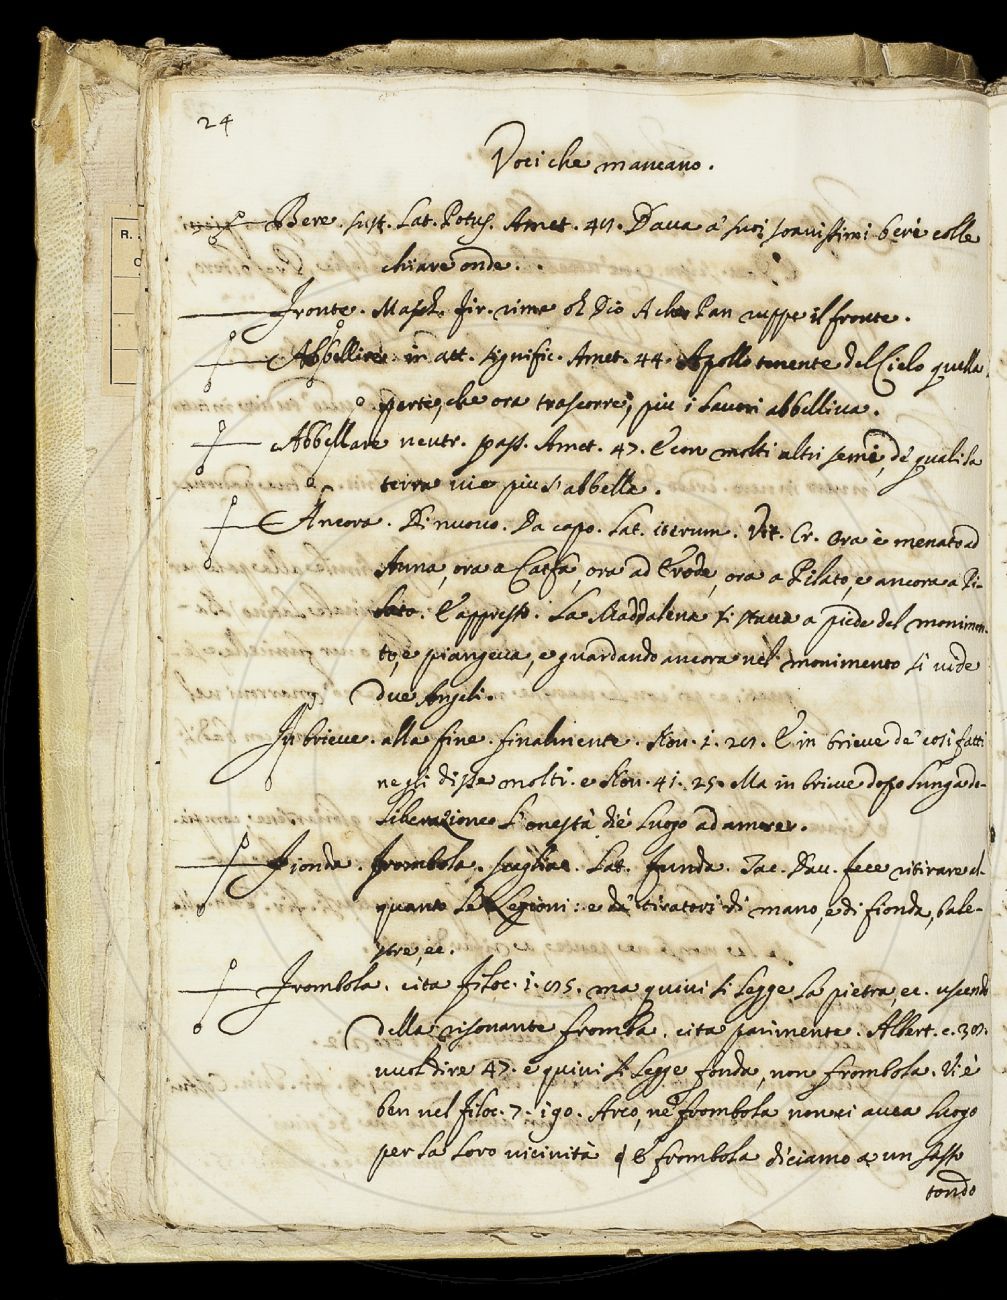 24
Voci che mancano.
Bere. sust. Lat. Potus. Amet. 45. Dava a' suoi soavissimi beri colle
chiare onde.
Fronte. Masch. Fir. rime oh Dio A che Pan ruppe il fronte.
Abbellire in att. signific. Amet. 44. Apollo tenente del Cielo quella
parte, che ora trascorre, più i lavori abbelliva.
Abbellare neutr. pass. Amet. 47. E con molti altri semi, de' quali la
terra vie più s'abbella.
Ancora. Di nuovo. Da capo. Lat. iterum. Vit. Cr. Ora è menato ad
Anna, ora a Caifa, ora ad Erode, ora a Pilato, e ancora a Pi-
lato. E appresso. La Maddalena si stava a piede del monimen-
to, e piangeva, e guardando ancora nel monimento si vide
due Angeli.
In brieve. alla fine. finalmente. Nov. 1. 25. E in brieve de' così fatti
ne gli disse molti. e Nov. 41. 25. Ma in brieve dopo lunga de-
liberazione l'onestà diè luogo ad amore.
Fionda. frombola. scaglia. Lat. funda. Tac. Dav. fece ritirare al-
quanto le Legioni: e da' tiratori di mano, e di fionda, bale-
stre, ec.
Frombola. cita Filoc. 1. ma quivi si legge la pietra, ec. uscendo
della risonante fromba. cita parimente. Albert. c. 30.
vuol dire 47. e quivi si legge fonda, non frombola. Vi è
ben nel Filoc. 7. 190. Arco, nè frombola non vi avea luogo
per la loro vicinità E frombola diciamo a un sasso
tondo
R.